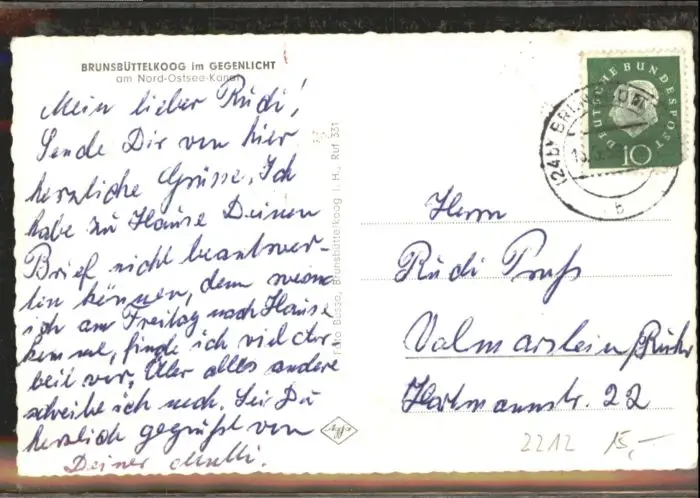 BRUNSBÜTTELKOOG im GEGENLICHT
am Nord-Ostsee-Kanal
Mein lieber Rudi!
Sende Dir von hier
herzliche Grüsse. Ich
habe zu Hause Deinen
Brief nicht beantwor-
ten können, denn wenn
ich am Freitag nach Hause
komme, finde ich viel Ar-
beit vor. Über alles andere
schreibe ich noch. Sei Du
herzlich gegrüßt von
Deiner Mutti.
Foto Busse, Brunsbüttelkoog i. H., Ruf 331
DEUTSCHE BUNDESPOST
10
(24b)
b
Herrn
Rudi
Volmarstein/Ruhr
Hartmannstr. 22
2212 15,-